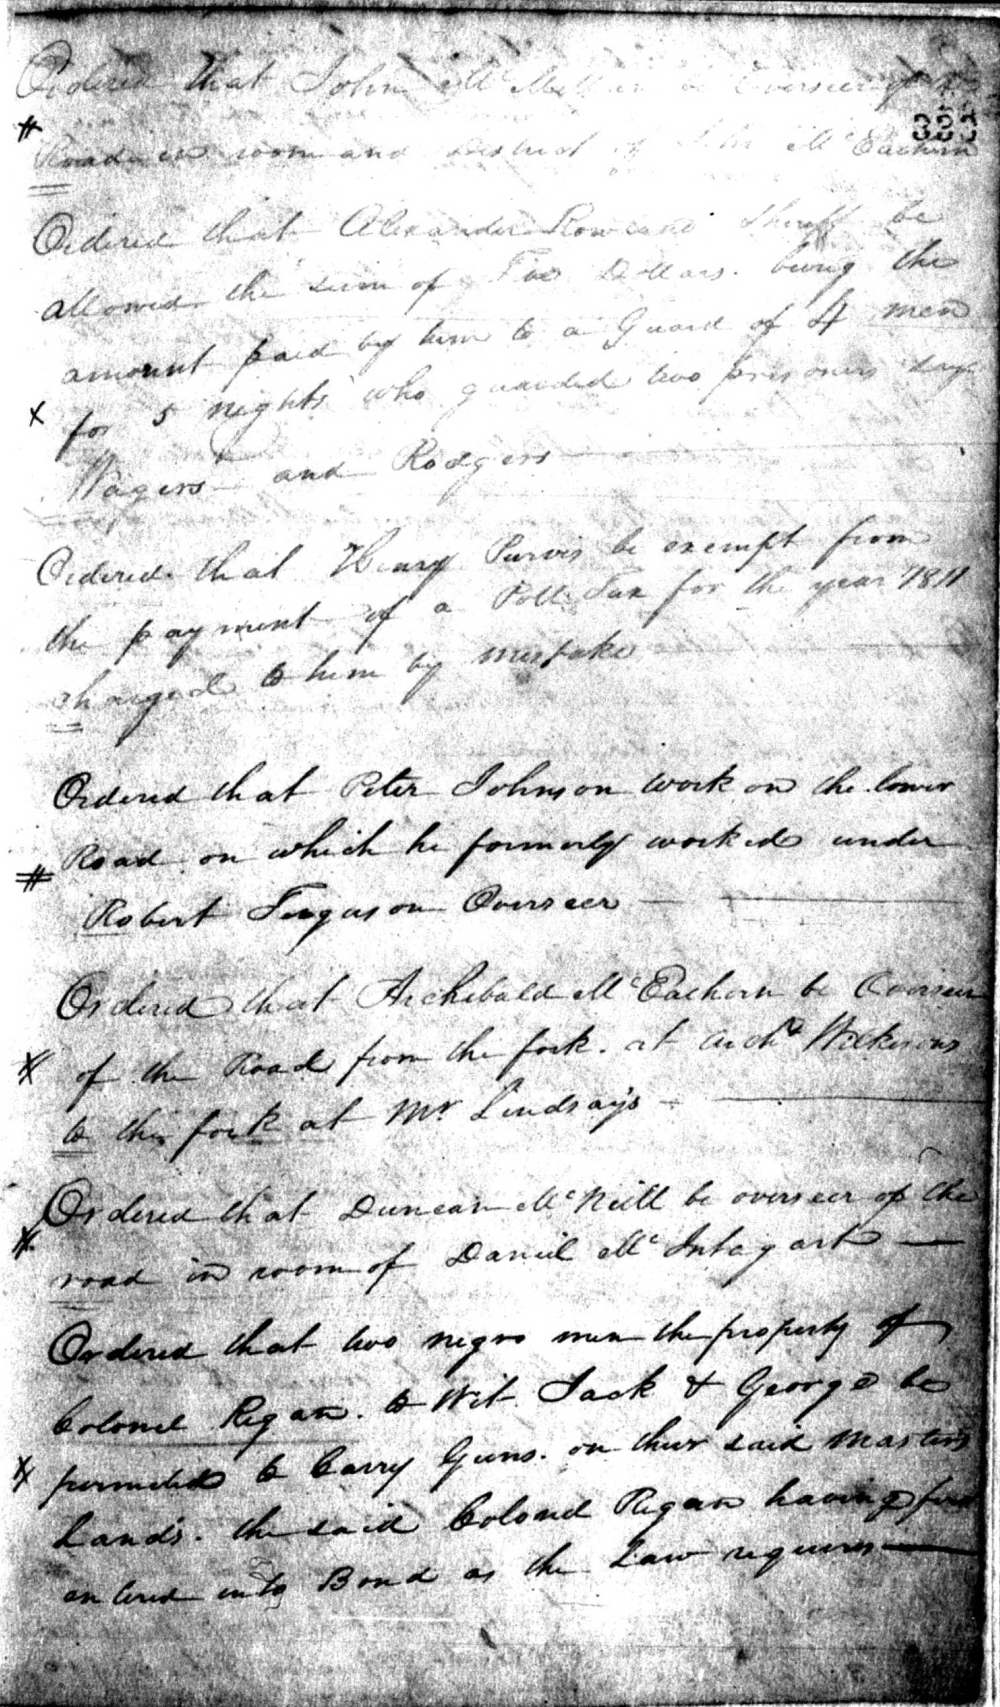 Ordered that John Mc be Overseer of
333
Road in room and District of Mc Eachern
Ordered that Alexander Rowland Sheriff be
allowed the sum of Dollars. being the
amount paid by him to a Guard of 4 men
for 5 nights who guarded two prisoners say
Wagers and Rodgers
Ordered that Henry Purvis be exempt from
the payment of a Poll Tax for the year 1811
charged to him by mistake
Ordered that Peter Johnson work on the lower
# Road on which he formerly worked under
Robert Ferguson Overseer
Ordered that Archibald Mc Eachern be Overseer
of the Road from the fork. at Archd Wilkisons
to the fork at Mr Lindsay's
Ordered that Duncan Mc Neill be overseer of the
road in room of Daniel Mc Intagart
Ordered that two negro men the property of
Colonel Regan. to Wit. Jack & George be
permitted to Carry Guns. on their said Masters
Lands. the said Colonel Regan having first
entered into Bond as the Law requires